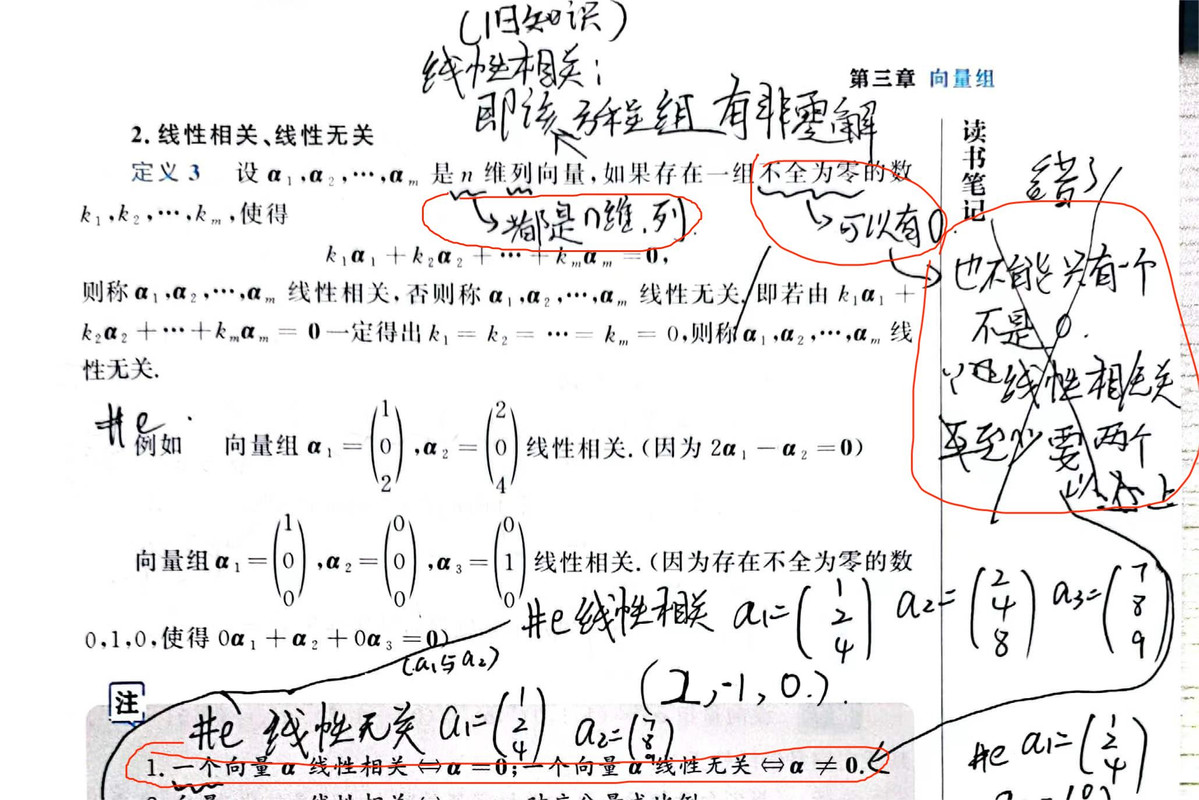 (旧知识)
线性相关:
即该方程组有非零解
第三章 向量组
2.线性相关、线性无关
定义3 设 α₁,α₂,⋯,αₘ 是 n 维列向量,如果存在一组不全为零的数
k₁,k₂,⋯,kₘ,使得
都是n维.列.
可以有0.
k₁α₁+k₂α₂+⋯+kₘαₘ=0,
则称 α₁,α₂,⋯,αₘ 线性相关,否则称 α₁,α₂,⋯,αₘ 线性无关.即若由 k₁α₁+
k₂α₂+⋯+kₘαₘ=0 一定得出 k₁=k₂=⋯=kₘ=0,则称 α₁,α₂,⋯,αₘ 线
性无关.
读书笔记
错了
也不能只有一个
不是0.
线性相关
至少要两个
以上
#e.
例如 向量组 α₁=(1 0 2),α₂=(2 0 4)线性相关.(因为 2α₁-α₂=0)
向量组 α₁=(1 0 0),α₂=(0 0 0),α₃=(0 1 0)线性相关.(因为存在不全为零的数
0,1,0,使得 0α₁+α₂+0α₃=0)
#e线性相关 a₁=(1 2 4) a₂=(2 4 8) a₃=(7 8 9)
(a₁与a₂)
(2,-1,0.).
注
#e 线性无关 a₁=(1 2 4) a₂=(7 8 9)
#e a₁=(1 2 4)
1.一个向量 α 线性相关⇔α=0;一个向量 α 线性无关⇔α≠0.